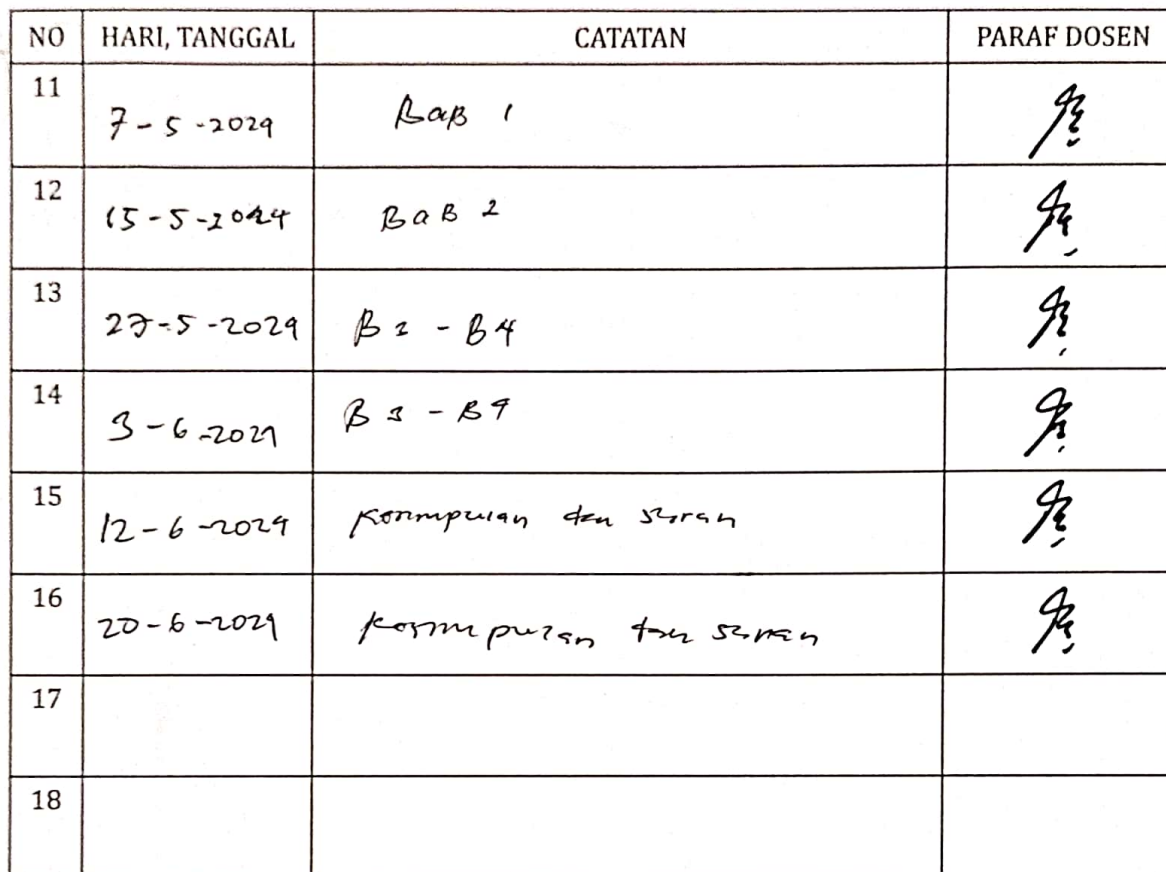 NO HARI, TANGGAL CATATAN PARAF DOSEN
11 7-5-2024 BAB 1
12 15-5-2024 BAB 2
13 27-5-2024 B3 - B4
14 3-6-2024 B3 - B4
15 12-6-2024 Kesimpulan dan saran
16 20-6-2024 Kesimpulan dan saran
17
18